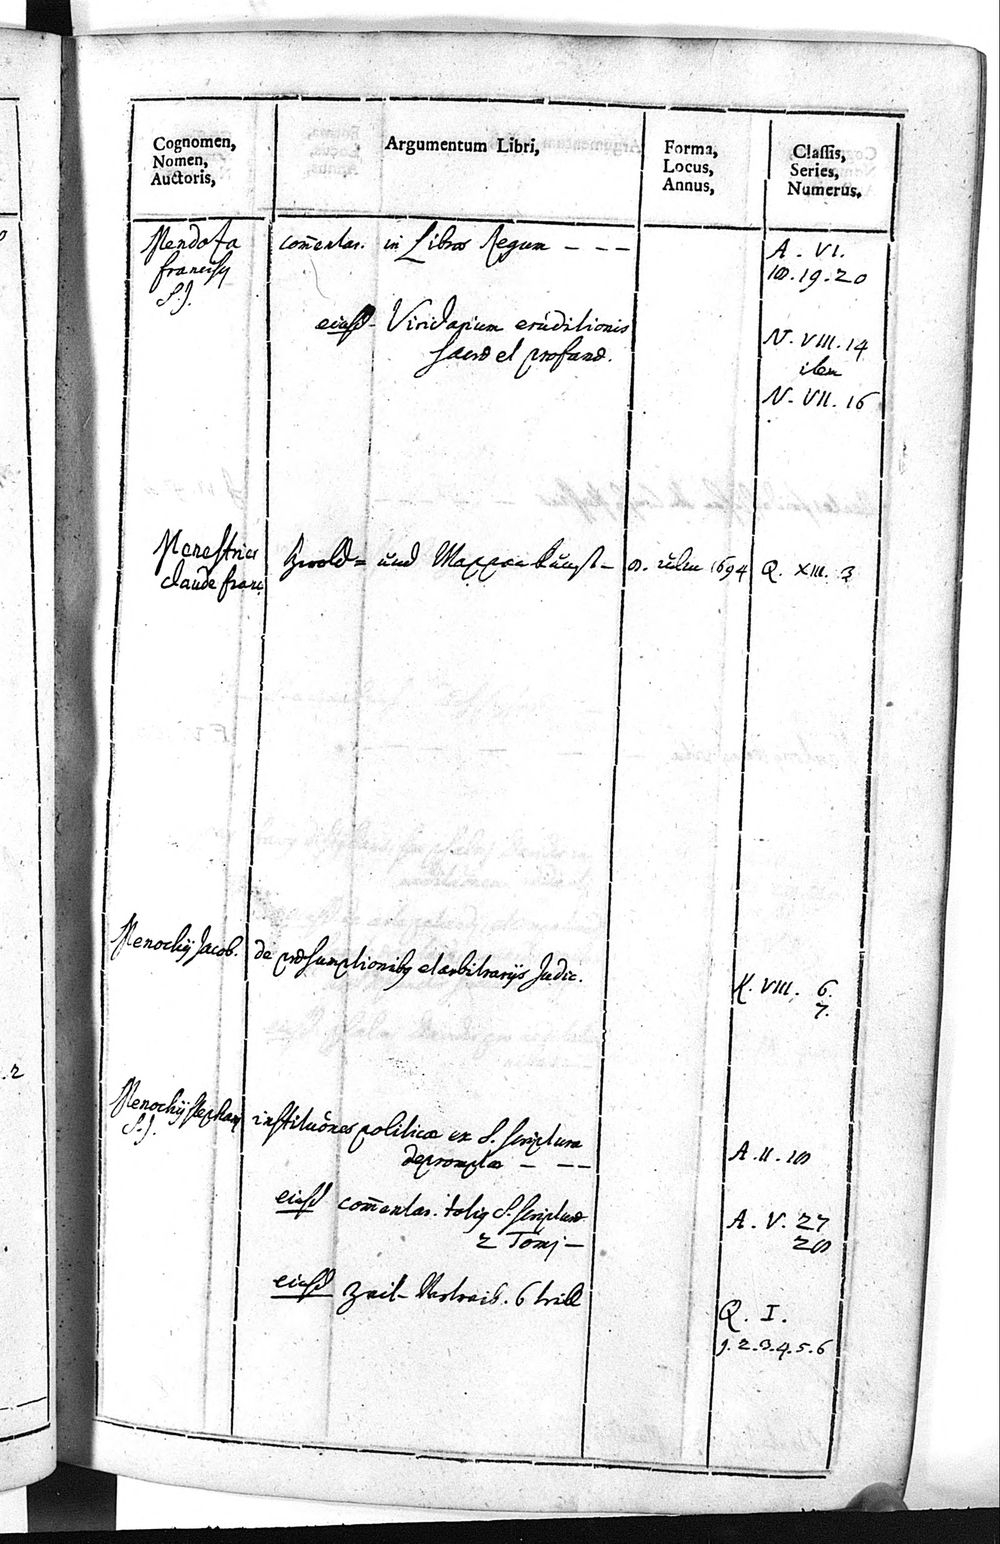 Cognomen,
Nomen,
Auctoris,
Argumentum Libri,
Forma,
Locus,
Annus,
Classis,
Series,
Numerus,
Mendoza
francisq
S.J.
com̄entar. in Libros Regum - - -
A. VI.
18.19.20
eiusd- Viridarium eruditionis
sacræ et profanæ.
N. VIII. 14
item
N. VII. 16
Menestrier
claude franc
und Wappen kunst-
8. ulm 1694
Q. XIII. 3
Menochij Jacob.
de præsumptionibq et arbitrarijs Judic.
K. VIII. 6.
7.
Menochij stephan
S.J.
institutiōnes politicæ ex S. scriptura
depromptæ - - -
A. II. 18
eiusd com̄entar. totiq S. scripturæ
2 Tomj-
A. V. 27
28
eiusd zeit-Vertreib. 6 theil
Q. I.
1.2.3.4.5.6